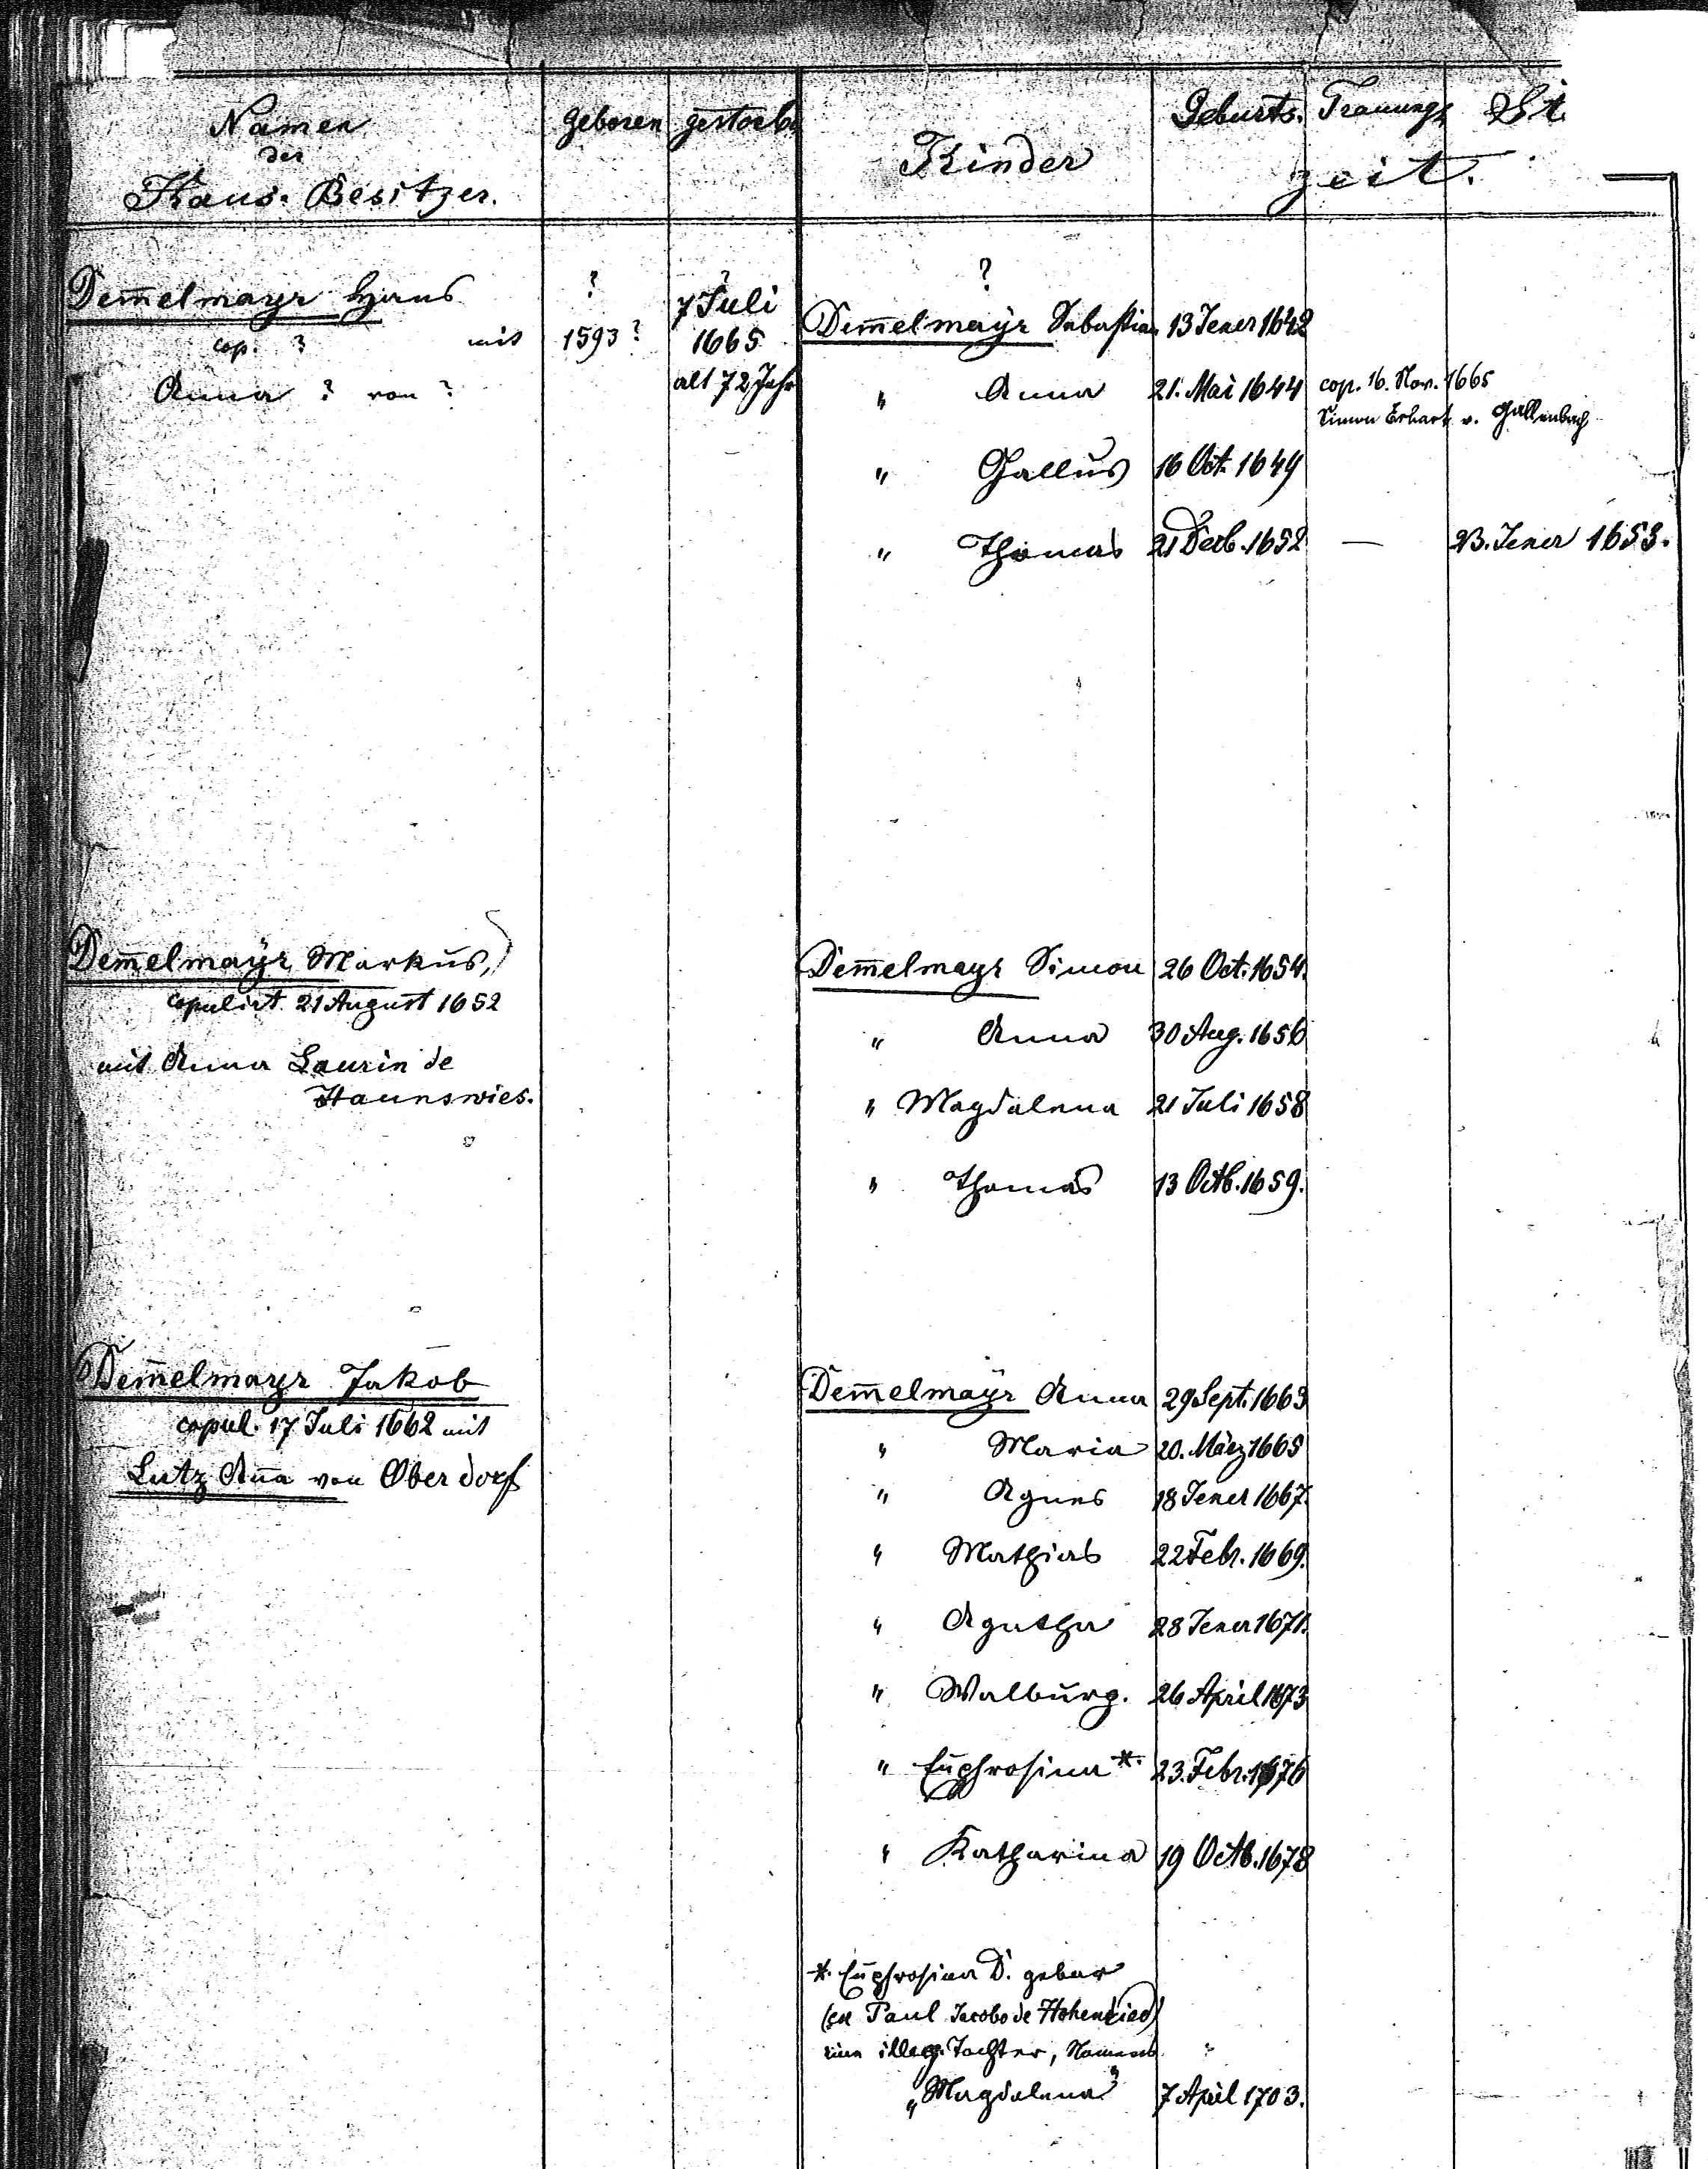 Namen
der
Haus-Besitzer.
Geboren
gestorb.
Kinder
Geburts-
Trauungs
St
zeit.
Dem̅elmayr Hans ? 7 Juli ?
cop. ? mit 1593? 1665 Dem̅elmaÿr Sebastian 13 Jener 1642
Anna ? von ? alt 72 Jahr " Anna 21. Mai 1644 cop. 16. Nov. 1665
Simon Erhart v. Gallenbach
" Gallus 16 Oct. 1649
" Thomas 21 Decb. 1652 — 23. Jener 1653.
Dem̅elmaÿr Markus, Dem̅elmayr Simon 26 Oct. 1654.
copulirt 21 August 1652
" Anna 30 Aug. 1656
mit Anna Laurin de
Haunswies.
" Magdalena 21 Juli 1658
" Thomas 13 Octb. 1659.
Dem̅elmayr Jakob Dem̅elmaÿr Anna 29 Sept. 1663
copul. 17 Juli 1662 mit
" Maria 20. März 1665
Lutz An̅a von Oberdorf
" Agnes 18 Jener 1667.
" Mathias 22 Febr. 1669.
" Agatha 28 Jener 1671.
" Walburg. 26 April 1673
" Euphrosina *. 23. Febr. 1676
" Katharina 19 Octb. 1678
*. Euphrosina D. gebar
(ex Paul Jacobo de Hohenried)
eine illeg. Tochter, Namens
"Magdalena" 7 April 1703.